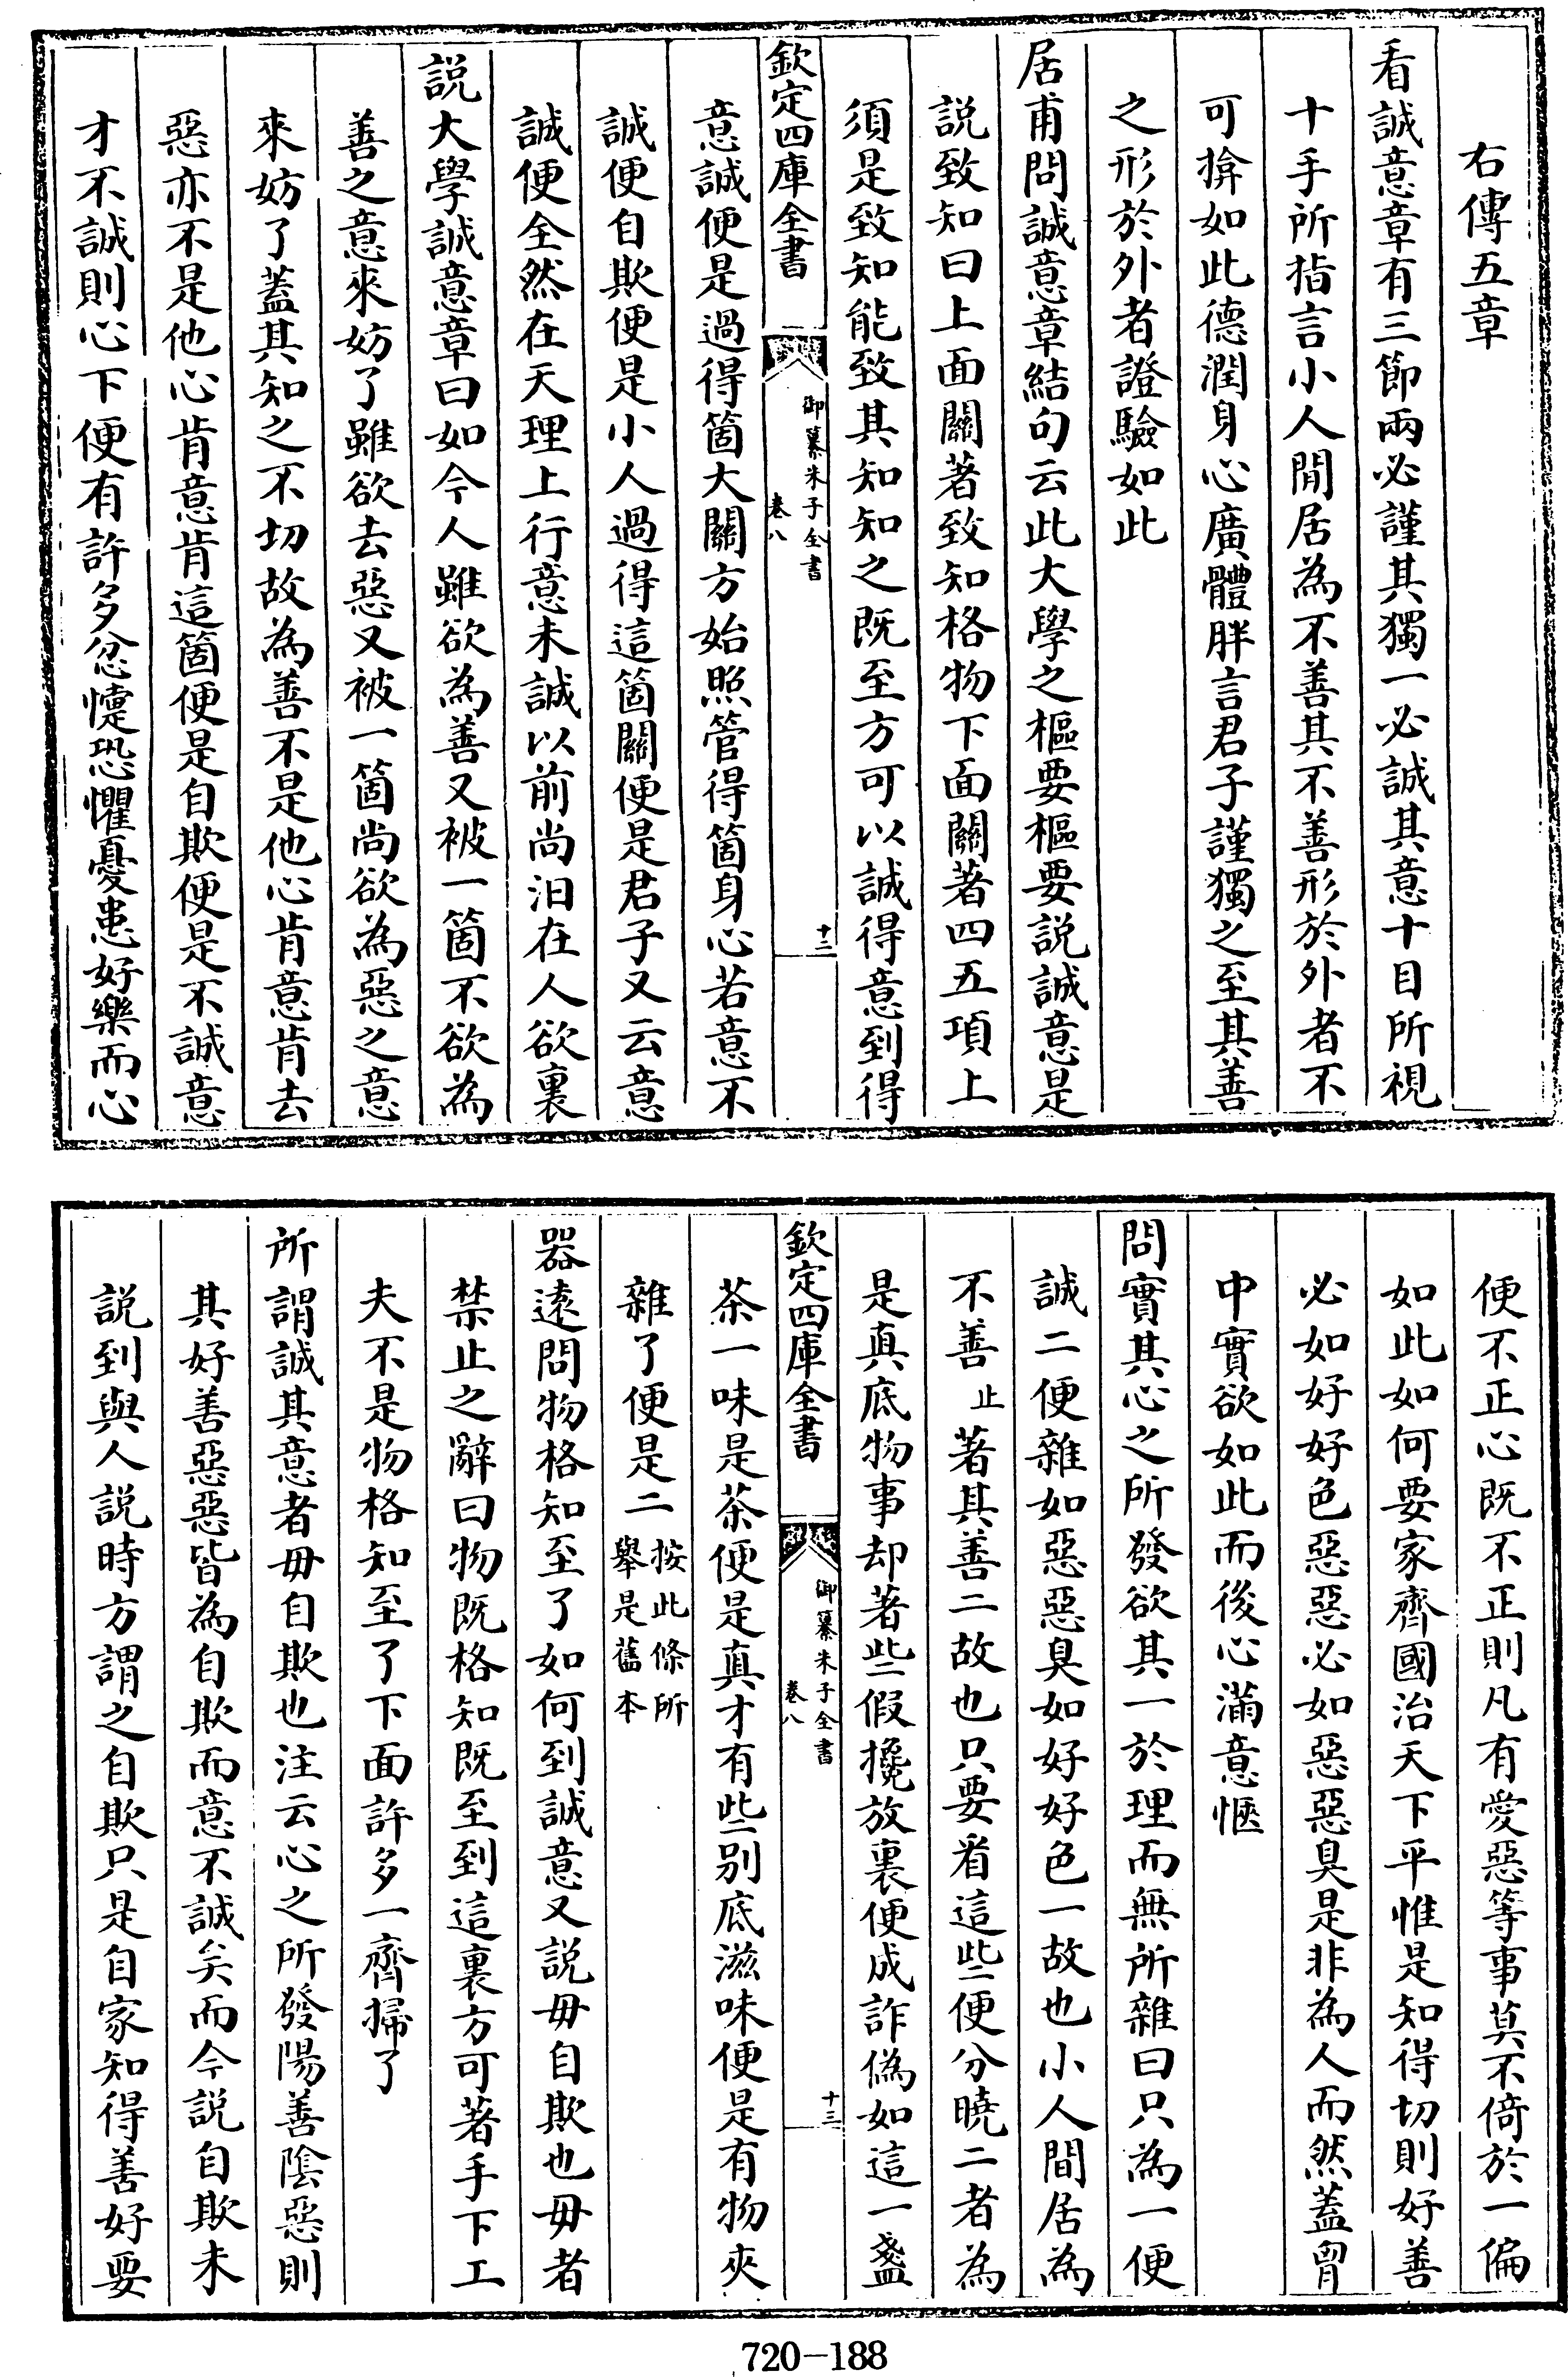 右傳五章
看誠意章有三節兩必謹其獨一必誠其意十目所視
十手所指言小人閒居為不善其不善形於外者不
可揜如此德潤身心廣體胖言君子謹獨之至其善
之形於外者證驗如此
居甫問誠意章結句云此大學之樞要樞要説誠意是
説致知曰上面關著致知格物下面關著四五項上
須是致知能致其知知之既至方可以誠得意到得
欽定四庫全書
御纂朱子全書
卷八
十二
意誠便是過得箇大關方始照管得箇身心若意不
誠便自欺便是小人過得這箇關便是君子又云意
誠便全然在天理上行意未誠以前尚汩在人欲裏
説大學誠意章曰如今人雖欲為善又被一箇不欲為
善之意來妨了雖欲去惡又被一箇尚欲為惡之意
來妨了蓋其知之不切故為善不是他心肯意肯去
惡亦不是他心肯意肯這箇便是自欺便是不誠意
才不誠則心下便有許多忿懥恐懼憂患好樂而心
便不正心既不正則凡有愛惡等事莫不倚於一偏
如此如何要家齊國治天下平惟是知得切則好善
必如好好色惡惡必如惡惡臭是非為人而然蓋胷
中實欲如此而後心滿意愜
問實其心之所發欲其一於理而無所雜曰只為一便
誠二便雜如惡惡臭如好好色一故也小人閒居為
不善止著其善二故也只要看這些便分曉二者為
是真底物事却著些假攙放裏便成詐偽如這一盞
欽定四庫全書
御纂朱子全書
卷八
十三
茶一味是茶便是真才有些别底滋味便是有物夾
雜了便是二按此條所
舉是舊本
器遠問物格知至了如何到誠意又説毋自欺也毋者
禁止之辭曰物既格知既至到這裏方可著手下工
夫不是物格知至了下面許多一齊掃了
所謂誠其意者毋自欺也注云心之所發陽善陰惡則
其好善惡惡皆為自欺而意不誠矣而今説自欺未
説到與人説時方謂之自欺只是自家知得善好要
720-188